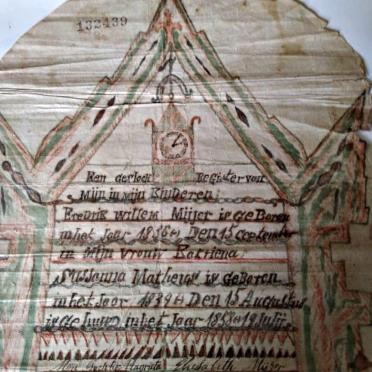 132439
Register von
Mijn in Mijn Kinderen
Fredrik Willem Mijser is geBoren
in het Jaar 1836 Den 15 September
in Mijn vrouw Katriena
Susanna Matheus is geBoren
in het Jaar 1839 Den 15 Augustus
is getuwt in het Jaar 1858 19 Julij
Elisabeth Mijser